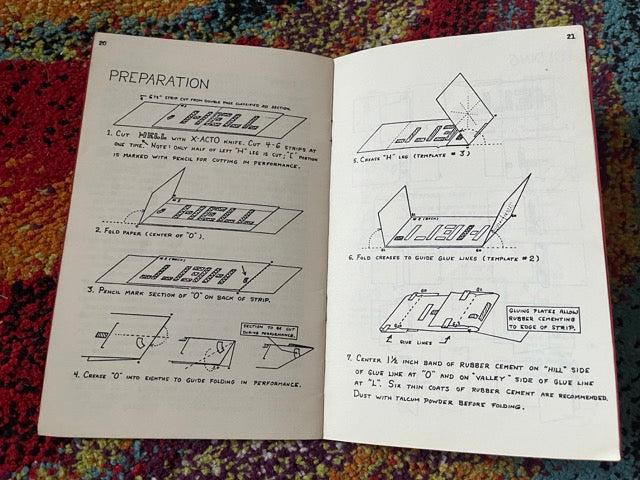 20
PREPARATION
6½" STRIP CUT FROM DOUBLE PAGE CLASSIFIED AD SECTION.
HELL
1. CUT HELL WITH X-ACTO KNIFE. CUT 4-6 STRIPS AT
ONE TIME. NOTE! ONLY HALF OF LEFT "H" LEG IS CUT; "[" PORTION
IS MARKED WITH PENCIL FOR CUTTING IN PERFORMANCE.
HELL
2. FOLD PAPER (CENTER OF "O").
3. PENCIL MARK SECTION OF "O" ON BACK OF STRIP.
SECTION TO BE CUT
DURING PERFORMANCE.
4. CREASE "O" INTO EIGHTHS TO GUIDE FOLDING IN PERFORMANCE.
21
5. CREASE "H" LEG (TEMPLATE #3)
6. FOLD CREASES TO GUIDE GLUE LINES (TEMPLATE #2)
GLUING PLATES ALLOW
RUBBER CEMENTING
TO EDGE OF STRIP.
GLUE LINES
7. CENTER 1½ INCH BAND OF RUBBER CEMENT ON "HILL" SIDE
OF GLUE LINE AT "O" AND ON "VALLEY" SIDE OF GLUE LINE
AT "L". SIX THIN COATS OF RUBBER CEMENT ARE RECOMMENDED.
DUST WITH TALCUM POWDER BEFORE FOLDING.